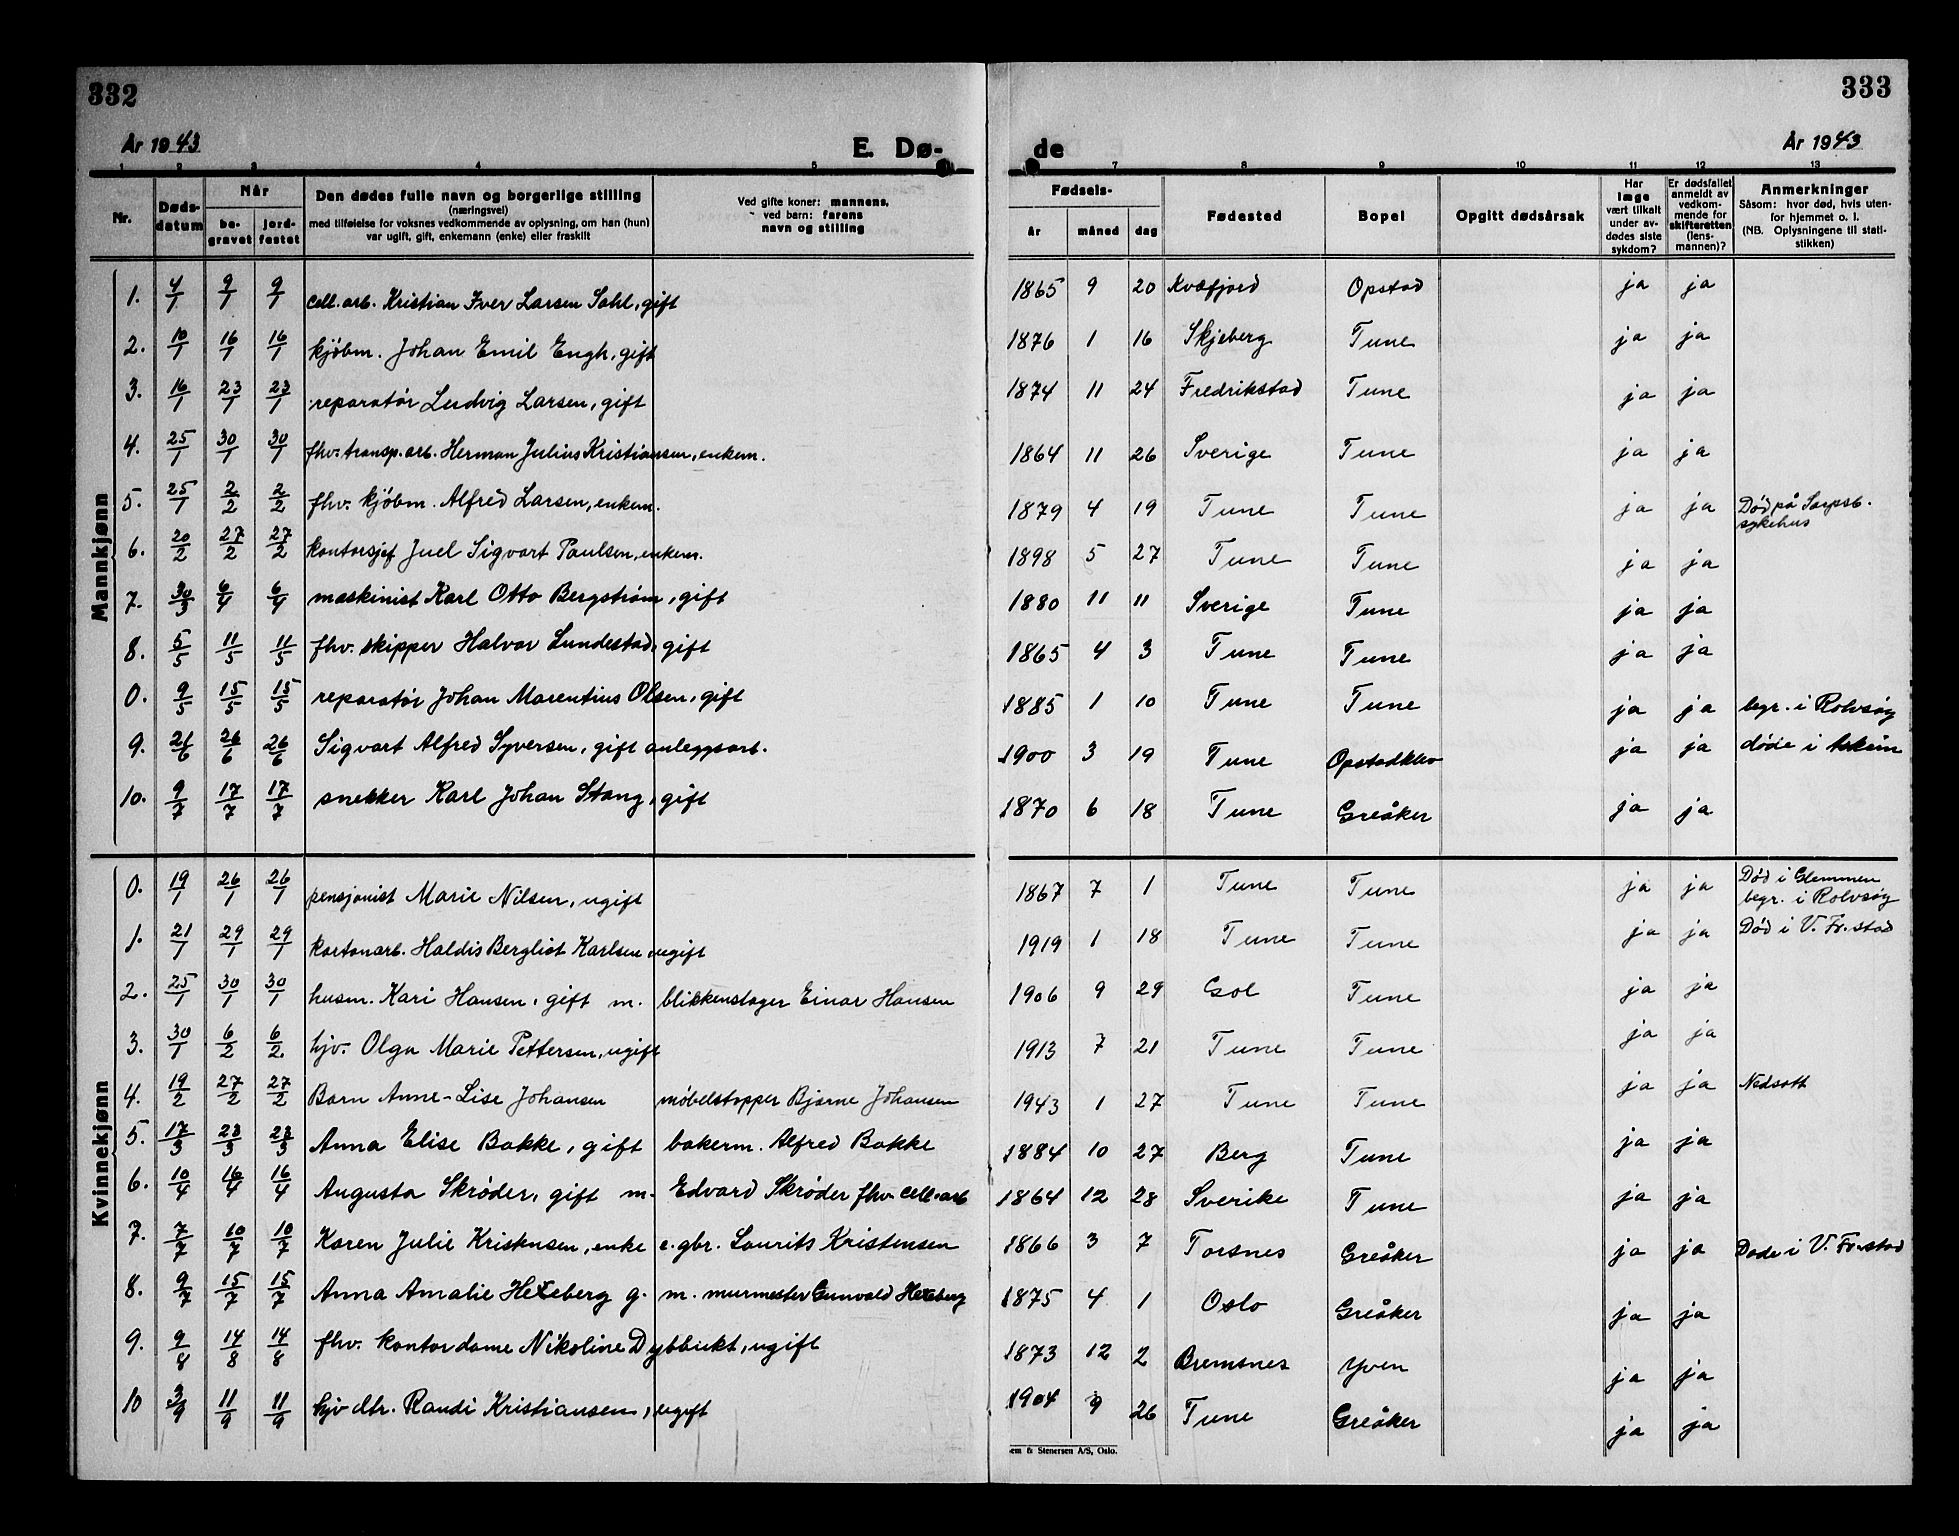 332
333
År 1943
E. Dø-
de
År 1943
1 2 3 4 5 7 8 9 10 11 12 13
Nr.
Døds-
datum
Når
be-
gravet
jord-
festet
Den dødes fulle navn og borgerlige stilling
(næringsvei)
med tilføielse for voksnes vedkommende av oplysning, om han (hun)
var ugift, gift, enkemann (enke) eller fraskilt
Ved gifte koner: mannens,
ved barn: farens
navn og stilling
Fødsels-
år måned dag
Fødested
Bopel
Opgitt dødsårsak
Har
læge
vært tilkalt
under av-
dødes siste
sykdom?
Er dødsfallet
anmeldt av
vedkom-
mende for
skifteretten
(lens-
mannen)?
Anmerkninger
Såsom: hvor død, hvis uten-
for hjemmet o. l.
(NB. Oplysningene til stati-
stikken)
Mannkjønn
1. 4/1 9/1 9/1 cell. arb. Kristian Iver Larsen Sahl, gift 1865 9 20 Kvæfjord Opstad ja ja
2. 10/1 16/1 16/1 kjøbm. Johan Emil Engh, gift 1876 1 16 Skjeberg Tune ja ja
3. 16/1 23/1 23/1 reparatør Ludvig Larsen, gift 1874 11 24 Fredrikstad Tune ja ja
4. 25/1 30/1 30/1 fhv. transp. arb. Herman Julius Kristiansen, enkem. 1864 11 26 Sverige Tune ja ja
5. 25/1 2/2 2/2 fhv. kjøbm. Alfred Larsen, enkem. 1879 4 19 Tune Tune ja ja Død på Sarpsb.
sykehus
6. 20/2 27/2 27/2 kontorsjef Juel Sigvart Paulsen, enkem. 1898 5 27 Tune Tune ja ja
7. 30/3 6/4 6/4 maskinist Karl Otto Bergstrøm, gift 1880 11 11 Sverige Tune ja ja
8. 5/5 11/5 11/5 fhv. skipper Halvor Lundestad, gift 1865 4 3 Tune Tune ja ja
0. 9/5 15/5 15/5 reparatør Johan Marentius Olsen, gift 1885 1 10 Tune Tune ja ja begr. i Rolvsøy
9. 21/6 26/6 26/6 Sigvart Alfred Syversen, gift anleggsarb. 1900 3 19 Tune Opstadklev ja ja døde i Askim
10. 9/7 17/7 17/7 snekker Karl Johan Stang, gift 1870 6 18 Tune Greåker ja ja
Kvinnekjønn
0. 19/1 26/1 26/1 pensjonist Marie Nilsen, ugift 1867 7 1 Tune Tune ja ja Død i Glemmen
begr. i Rolvsøy
1. 21/1 29/1 29/1 kartonarb. Haldis Bergliot Karlsen, ugift 1919 1 18 Tune Tune ja ja Død i V. Fr.stad
2. 25/1 30/1 30/1 husm. Kari Hansen, gift m. blikkenslager Einar Hansen 1906 9 29 Gol Tune ja ja
3. 30/1 6/2 6/2 hjv. Olga Marie Pettersen, ugift 1913 7 21 Tune Tune ja ja
4. 19/2 27/2 27/2 Barn Anne-Lise Johansen møbelstopper Bjarne Johansen 1943 1 27 Tune Tune ja ja Nedsatt
5. 17/3 23/3 23/3 Anna Elise Bakke, gift bakerm. Alfred Bakke 1884 10 27 Berg Tune ja ja
6. 10/4 16/4 16/4 Augusta Skrøder, gift m. Edvard Skrøder fhv. cell. arb 1864 12 28 Sverike Tune ja ja
7. 7/7 10/7 10/7 Karen Julie Kristnsen, enke e. gbr. Laurits Kristensen 1866 3 7 Torsnes Greåker ja ja Døde i V. Fr.stad
8. 9/7 15/7 15/7 Anna Amalie Hexeberg g. m. murmester Gunvald Hexeberg 1875 4 1 Oslo Greåker ja ja
9. 9/8 14/8 14/8 fhv. kontordame Nikoline Dybbukt, ugift 1873 12 2 Bremsnes Yven ja ja
10 3/9 11/9 11/9 hjv dtr. Randi Kristiansen, ugift 1904 9 26 Tune Greåker ja ja
em & Stenersen A/S, Oslo.